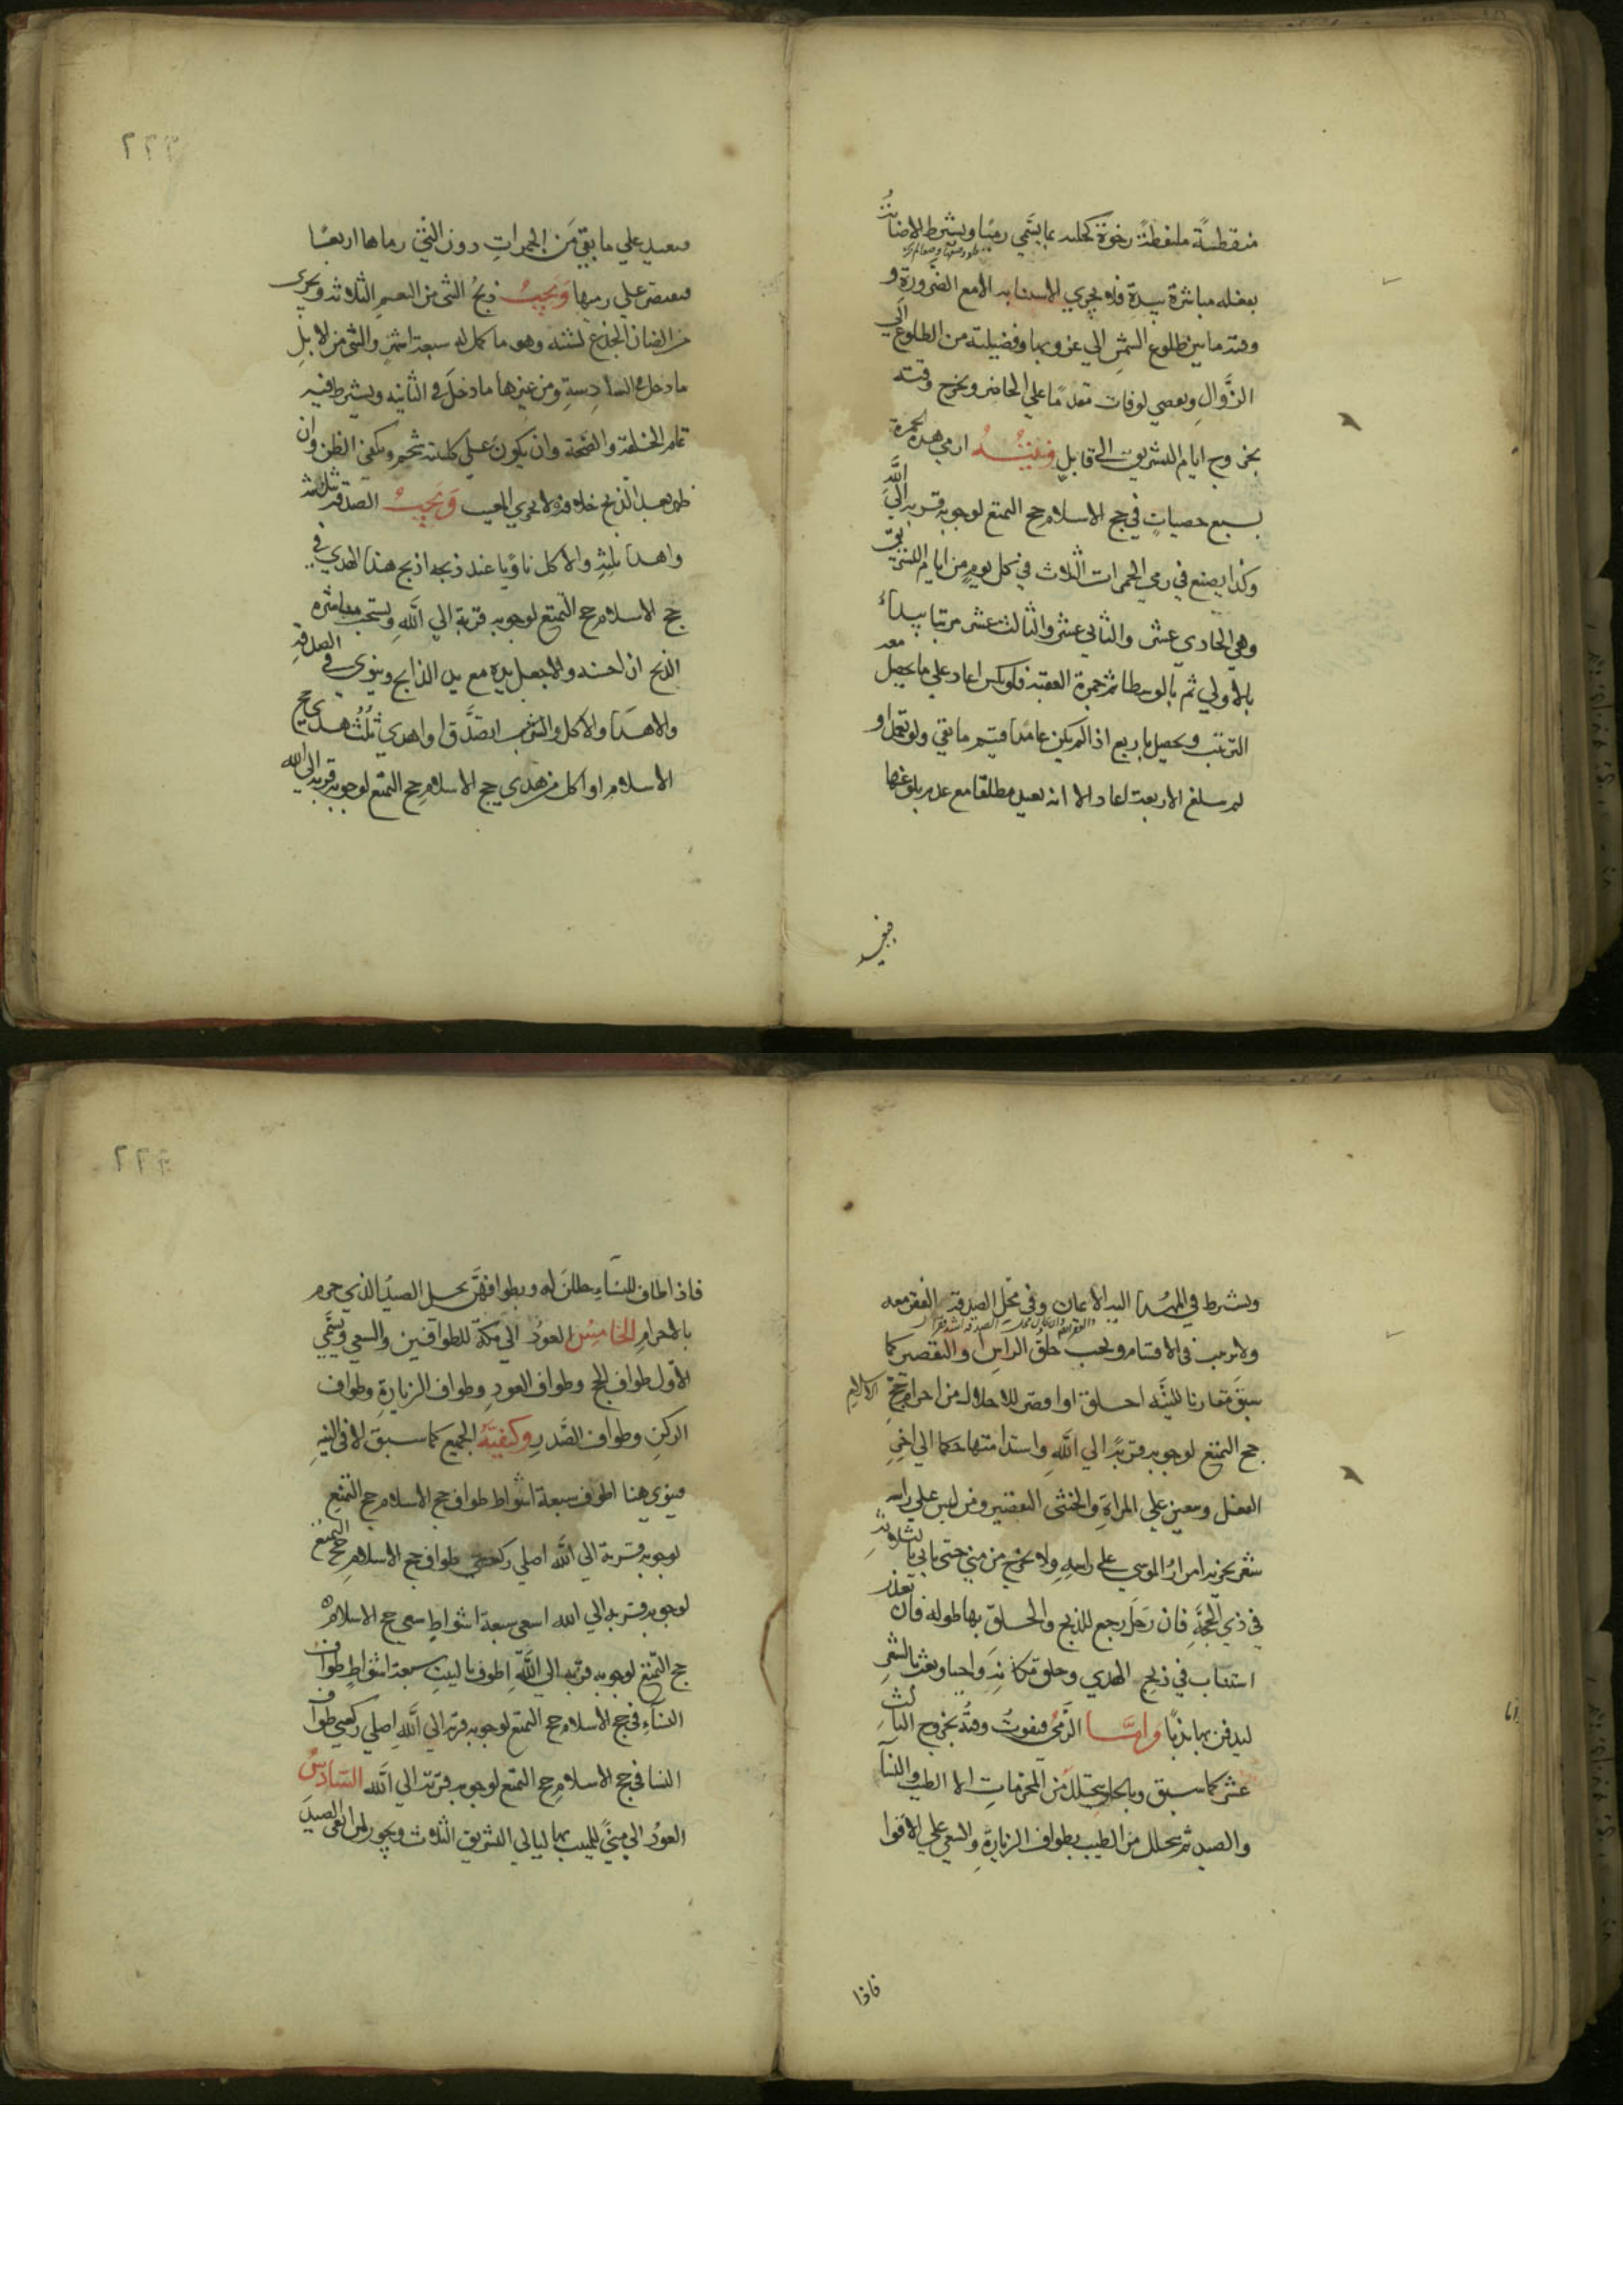 منقطنة ملتقطة رخوة كحلية بما يسمى رميا ويشترط الاصابة
بفعله مباشرة بيده فلا يجزي الاستنابة الا مع الضرورة و
وقته ما بين طلوع الشمس الي غروبها وفضيلته من الطلوع الي
الزوال ويعصي لوفات متعدما علي الحاضر ويخرج وقته
بخروج ايام التشريق الي قابل ونيته ارمي هذه الجمرة
بسبع حصيات في حج الاسلام حج التمتع لوجوبه قربة الي الله
وكذا يصنع في رمي الجمرات الثلاث في كل يوم من ايام التشريق
وهي الحادي عشر والثاني عشر والثالث عشر مرتبا يبداء
بالاولي ثم بالوسطا ثم جمرة العقبة فلو نكس اعاد علي ما يحصل معه
الترتيب ويحصل باربع اذا لم يكن عامدا فيتم ما بقي ولو تعمد او
لم يبلغ الاربعة اعاد الا انه يعيد مطلقا مع عدم بلوغها
فيعيد
فيعيد علي ما بقي من الجمرات دون التي رماها اربعا
فيقتصر علي رميها وَيجب ذبح الثني من النعم الثلاثة ويجزي
من الضان الجذع لسنته وهو ما كمل له سبعة اشهر والثني من الابل
ما دخل في السادسة ومن غيرها ما دخل في الثانيه ويشترط فيه
تمام الخلقة والصحة وان يكون علي كليته شحم ويكفي الظن وان
ظهر بعد الذبح خلافه ولا يجزي المعيب وَيَجِبُ الصدقة بثلثه
واهدا ثلثه والاكل ناويا عند ذبحه اذبح هذا الهدي في
حج الاسلام حج التمتع لوجوبه قربة الي الله ويستحب مباشرة
الذبح ان احسنه والا جعل يده مع يد الذابح وينوي في الصدقة
والاهدا والاكل والترتيب اتصدق او اهدي ثلث هدي حج
الاسلام او آكل من هدي حج الاسلام حج التمتع لوجوبه قربة الي الله
ويشترط في المهدا اليه الايمان وفي محل الصدقة الفقر معه
ولا ترتيب في الاقسام ويجب حلق الراس او التقصير كما
سبق مقارنا للنية احلق او اقصر للاحلال من احرام حج الاسلام
حج التمتع لوجوبه قربة الي الله واستدامتها حكما الي اخر
الفعل ويتعين علي المراة والخنثى التقصير ومن ليس علي راسه
شعر يجزيه امرار الموسي علي راسه ولا يخرج من مني حتى ياتي بالثلاثة
في ذي الحجة فان رحل رجع للذبح والحلق بها طوله فان تعذر
استناب في ذبح الهدي وحلق مكانه واجبا وبعث بالشعر
ليدفن بها ندبا واما الرمي فيفوت وقته بخروج الثالث
عشر كما سبق وبالحلق يتحلل من المحرمات الا الطيب والنسآ
والصيد ثم يتحلل من الطيب بطواف الزيارة والسعي علي الاقوا
فاذا
فاذا طاف للنسآء حللن له وبطوافهن يحل الصيد الذي حرم
بالاحرام الخامس العود الي مكة للطوافين والسعي ويسمي
الاول طواف الحج وطواف العود وطواف الزيارة وطواف
الركن وطواف الصدر وكيفية الجميع كما سبق الا في النية
فينوي هنا اطوف سبعة اشواط طواف حج الاسلام حج التمتع
لوجوبه قربة الي الله اصلي ركعتي طواف حج الاسلام حج التمتع
لوجوبه قربة الي الله اسعي سبعة اشواط سعي حج الاسلام
حج التمتع لوجوبه قربة الي الله اطوف بالبيت سبعة اشواط طواف
النسآء في حج الاسلام حج التمتع لوجوبه قربة الي الله اصلي ركعتي طواف
النسا في حج الاسلام حج التمتع لوجوبه قربة الي الله السادس
العود الي مني للمبيت بها ليالي التشريق الثلاث ويجوز لمن اتقى الصيد